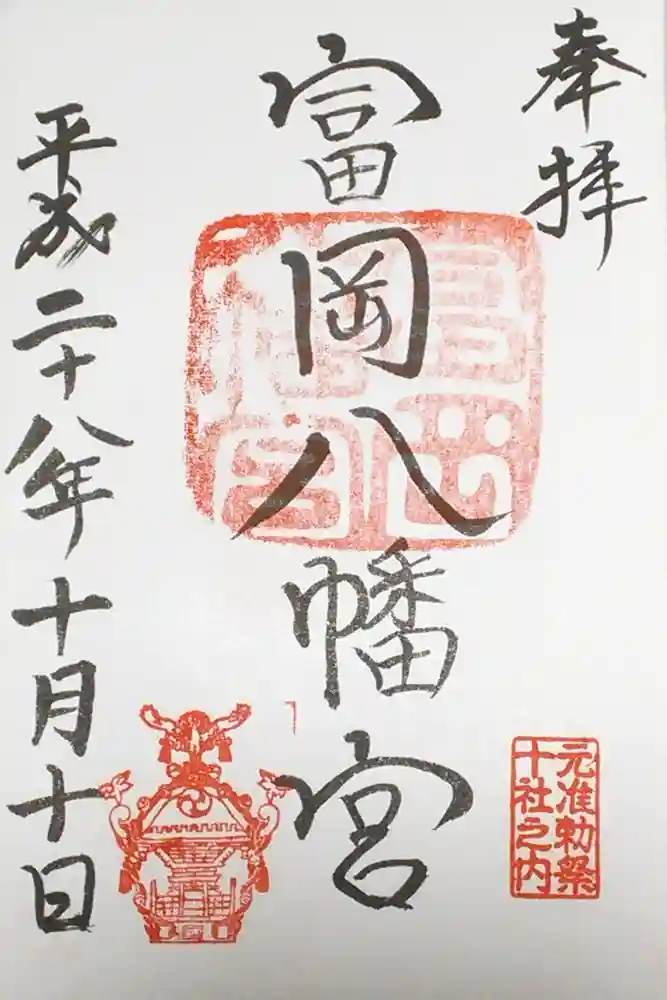 奉拝
元准勅祭
十社之内
富岡八幡宮
平成二十八年十月十日